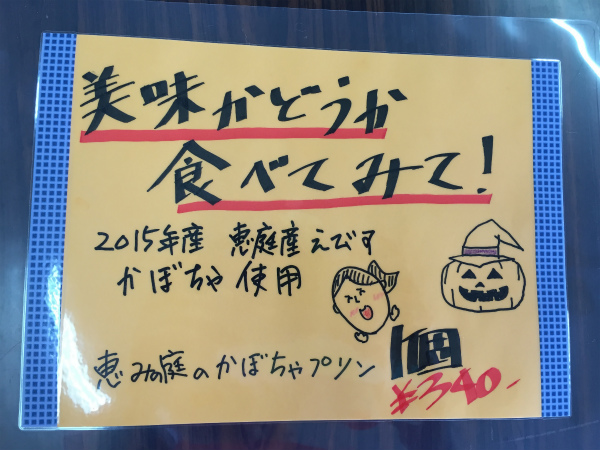 美味かどうか
食べてみて!
2015年産 恵庭産えびす
かぼちゃ使用
恵み庭のかぼちゃプリン 1個
¥340-